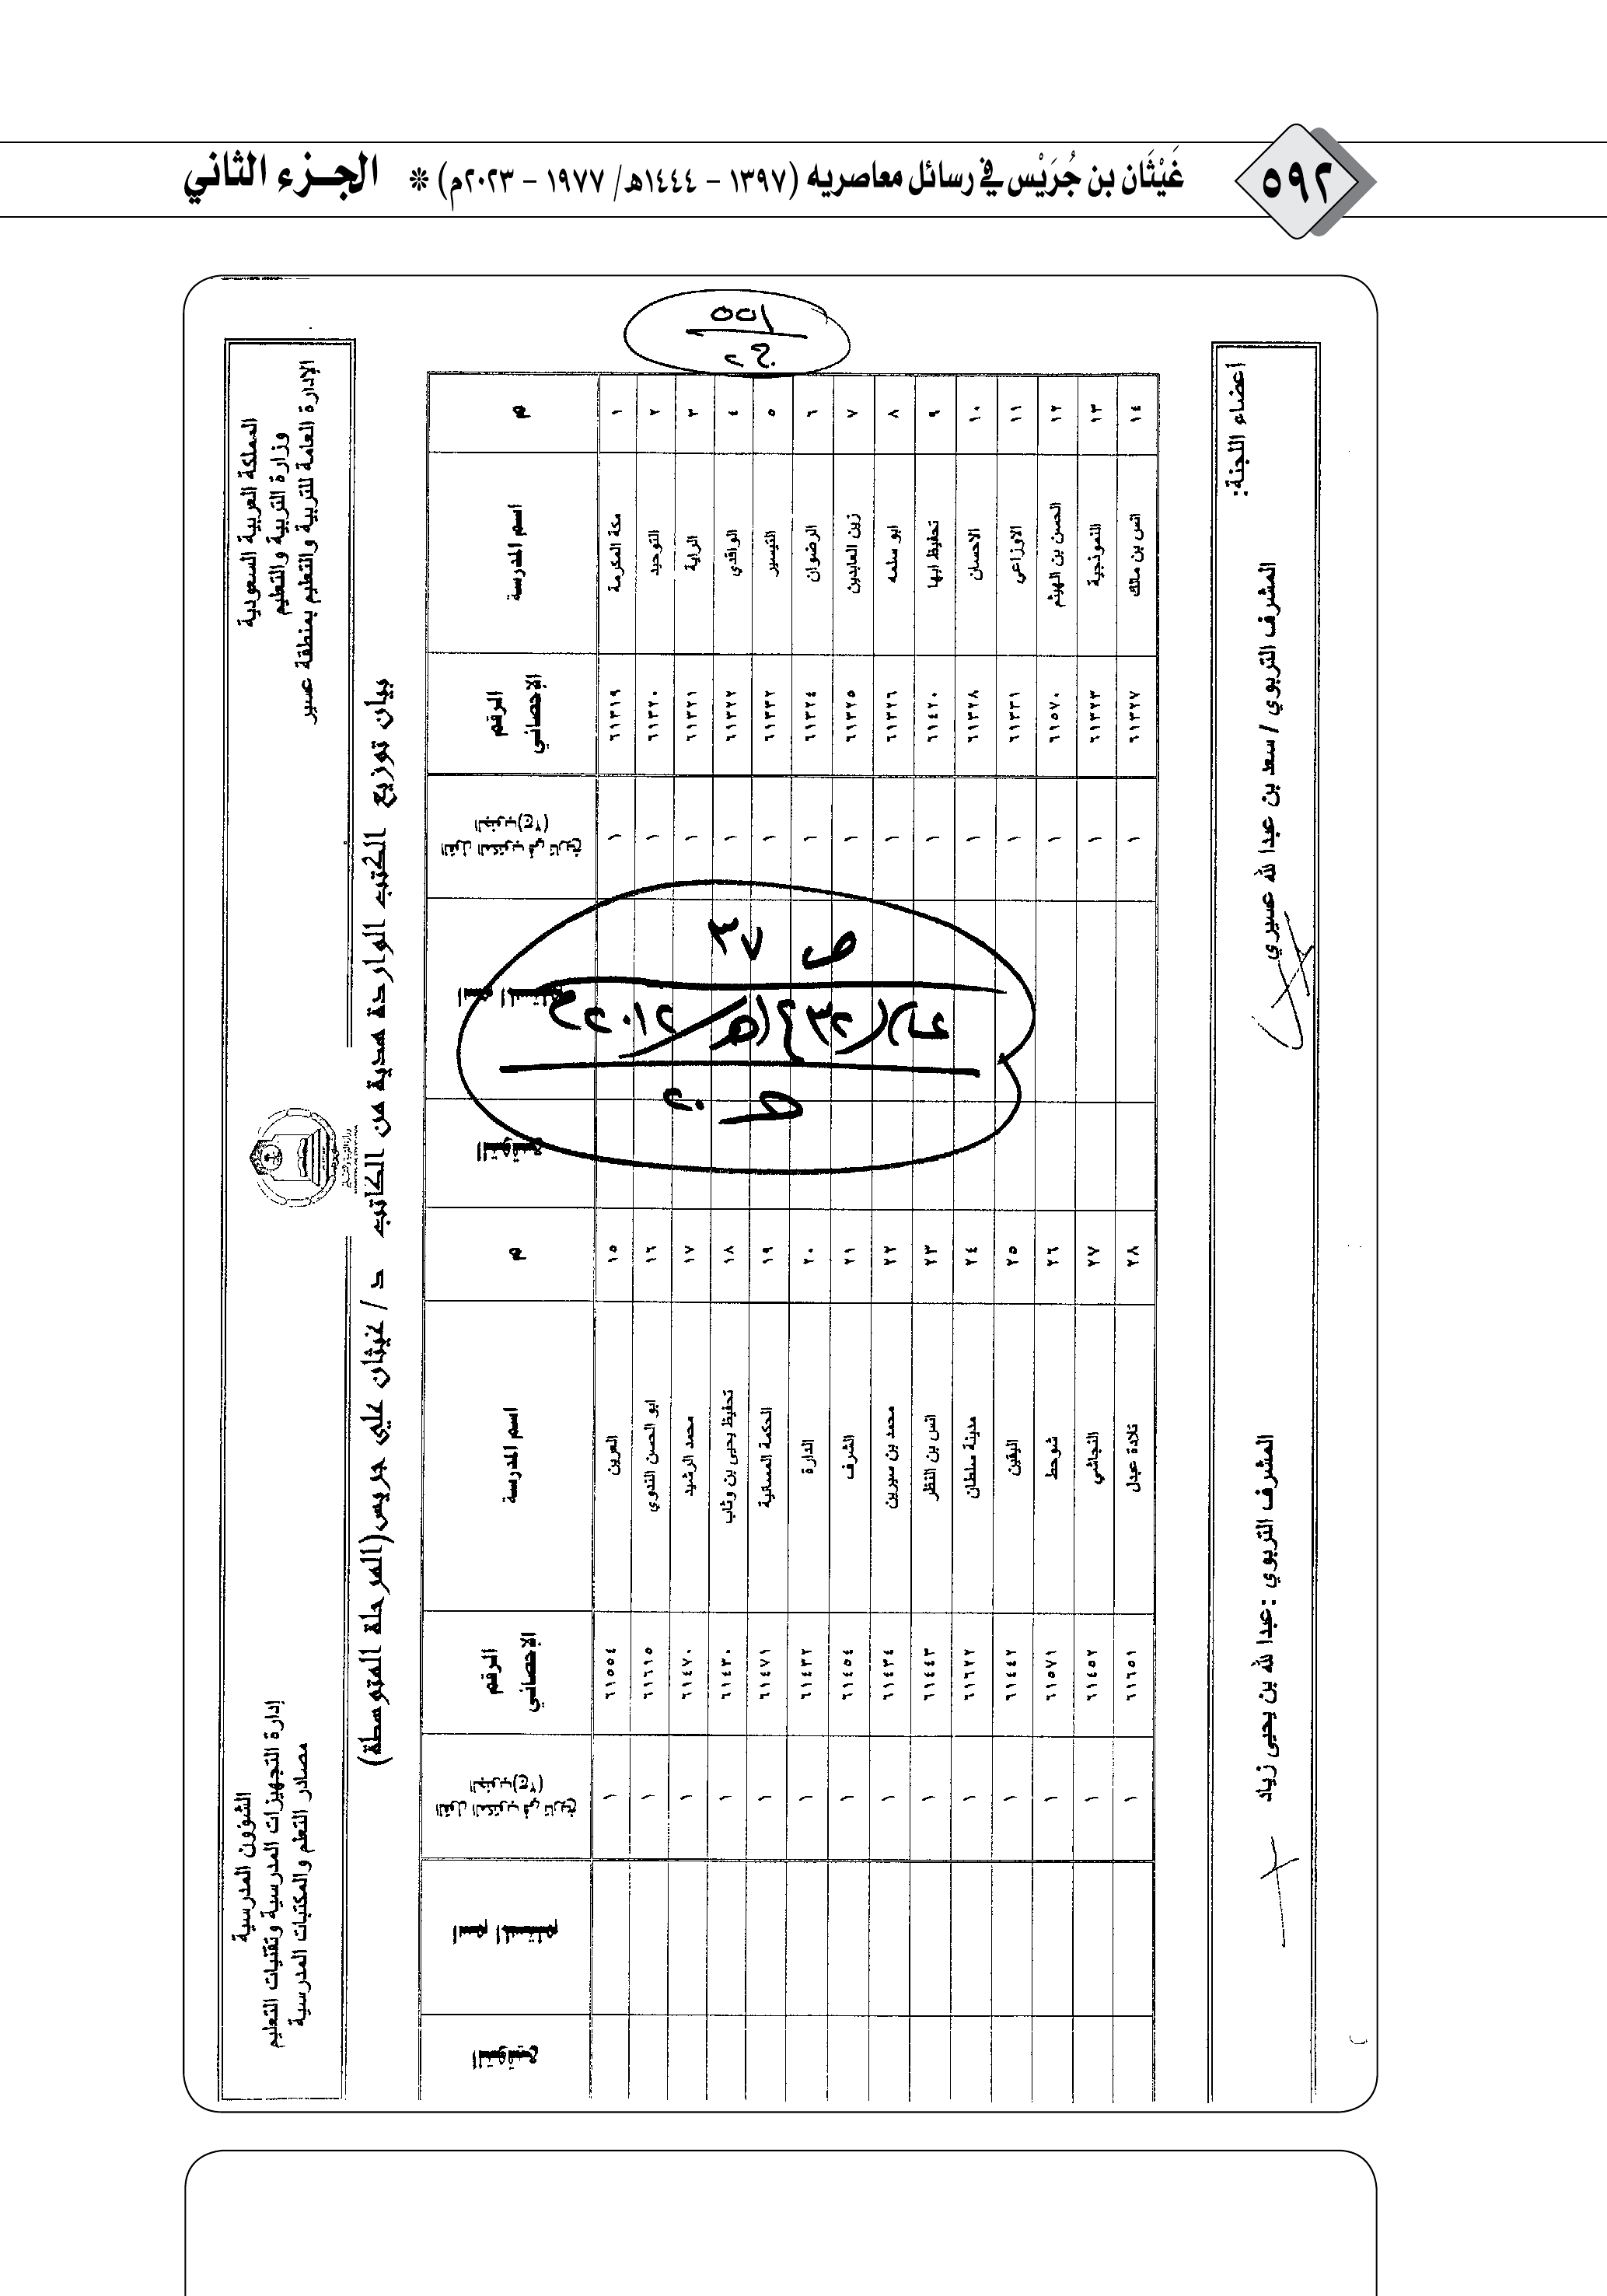 ٥٩٢
غَيْثَان بن جُرَيْس في رسائل معاصريه (١٣٩٧ - ١٤٤٤هـ/ ١٩٧٧ - ٢٠٢٣م) * الجزء الثاني
المملكة العربية السعودية
وزارة التربية والتعليم
الإدارة العامة للتربية والتعليم بمنطقة عسير
الشؤون المدرسية
إدارة التجهيزات المدرسية وتقنيات التعليم
مصادر التعلم والمكتبات المدرسية
بيان توزيع الكتب الواردة هدية من الكاتب د / غيثان علي جريس(المرحلة المتوسطة)
م اسم المدرسة الرقم الإحصائي القول المكتوب في تاريخ الجنوب(ج٢) اسم المستلم التوقيع م اسم المدرسة الرقم الإحصائي القول المكتوب في تاريخ الجنوب(ج٢) اسم المستلم التوقيع
١ مكة المكرمة ٦١٣١٩ ١ ١٥ العرين ٦١٥٥٤ ١
٢ التوحيد ٦١٣٢٠ ١ ١٦ ابو الحسن الندوي ٦١٦١٥ ١
٣ الراية ٦١٣٢١ ١ ١٧ محمد الرشيد ٦١٤٧٠ ١
٤ الواقدي ٦١٣٢٢ ١ ١٨ تحفيظ يحيى بن وثاب ٦١٤٣٠ ١
٥ التيسير ٦١٣٣٢ ١ ١٩ الحكمة المسائية ٦١٤٧١ ١
٦ الرضوان ٦١٣٢٤ ١ ٢٠ الدارة ٦١٤٣٢ ١
٧ زين العابدين ٦١٣٢٥ ١ ٢١ الشرف ٦١٤٥٤ ١
٨ ابو سلمه ٦١٣٢٦ ١ ٢٢ محمد بن سيرين ٦١٤٣٤ ١
٩ تحفيظ ابها ٦١٤٢٠ ١ ٢٣ انس بن النظر ٦١٤٤٣ ١
١٠ الاحسان ٦١٣٢٨ ١ ٢٤ مدينة سلطان ٦١٦٢٢ ١
١١ الاوزاعي ٦١٣٣١ ١ ٢٥ اليقين ٦١٤٤٢ ١
١٢ الحسن بن الهيثم ٦١٥٧٠ ١ ٢٦ شوحط ٦١٥٧١ ١
١٣ النموذجية ٦١٣٢٣ ١ ٢٧ النجاشي ٦١٤٥٢ ١
١٤ انس بن مالك ٦١٣٢٧ ١ ٢٨ تلادة عبدل ٦١٦٥١ ١
ص ٣٧
اعضاء اللجنة:
المشرف التربوي / سعد بن عبدا لله عسيري
المشرف التربوي :عبدا لله بن يحيى زياد